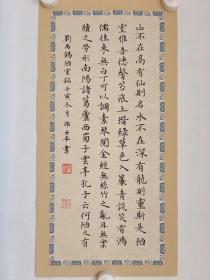 山不在高有仙則名水不在深有龍則靈斯是陋
室惟吾德馨苔痕上堦綠草色入簾青談笑有鴻
儒往來無白丁可以調素琴閱金經無絲竹之亂耳無案
牘之勞形南陽諸葛廬西蜀子雲亭孔子云何陋之有
劉禹錫陋室銘壬寅冬月 士平書